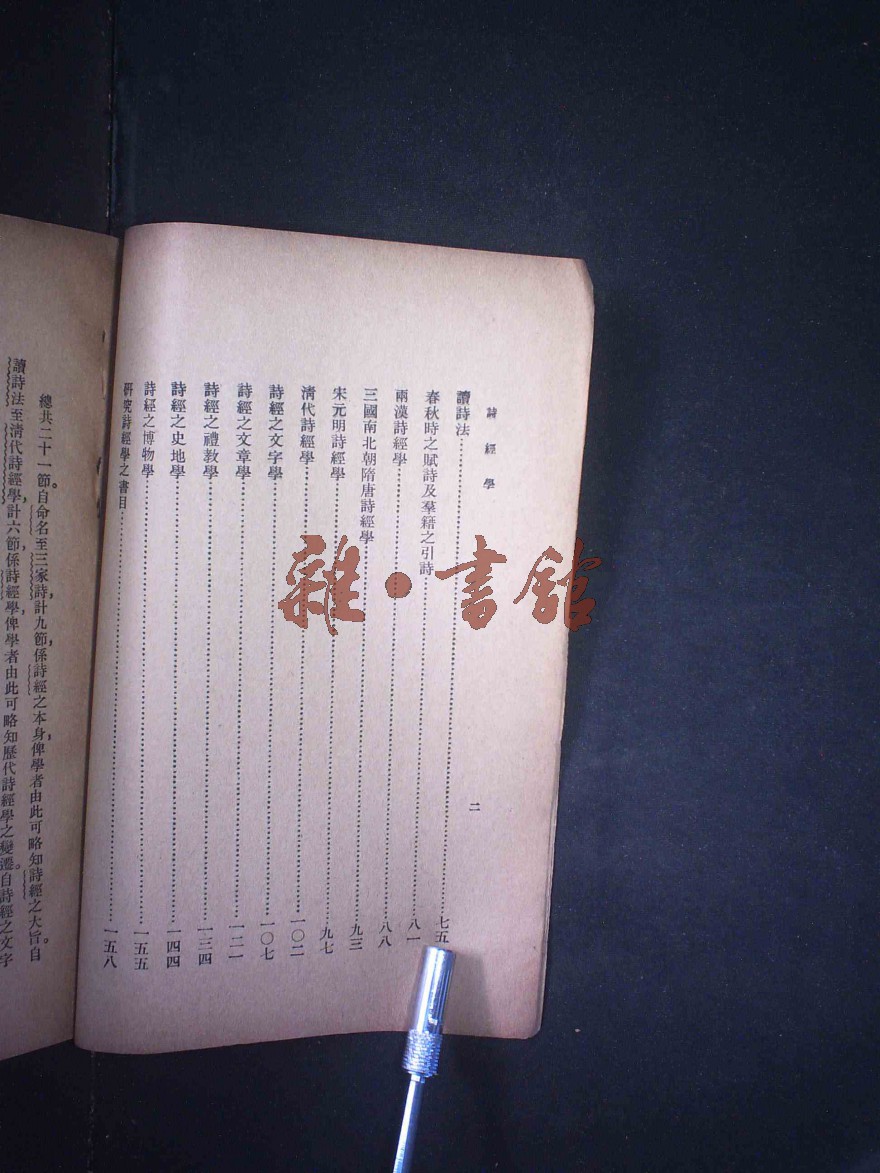 詩經學
二
讀詩法⋯⋯七五
春秋時之賦詩及羣籍之引詩⋯⋯八一
兩漢詩經學⋯⋯八八
三國南北朝隋唐詩經學⋯⋯九三
宋元明詩經學⋯⋯九七
清代詩經學⋯⋯一〇二
詩經之文字學⋯⋯一〇七
詩經之文章學⋯⋯一二一
詩經之禮教學⋯⋯一三四
詩經之史地學⋯⋯一四四
詩經之博物學⋯⋯一五五
研究詩經學之書目⋯⋯一五八
總共二十一節。自命名至三家詩，計九節，係詩經之本身，俾學者由此可略知詩經之大旨。自
讀詩法至清代詩經學，計六節，係詩經學，俾學者由此可略知歷代詩經學之變遷。自詩經之文字
雜·書館